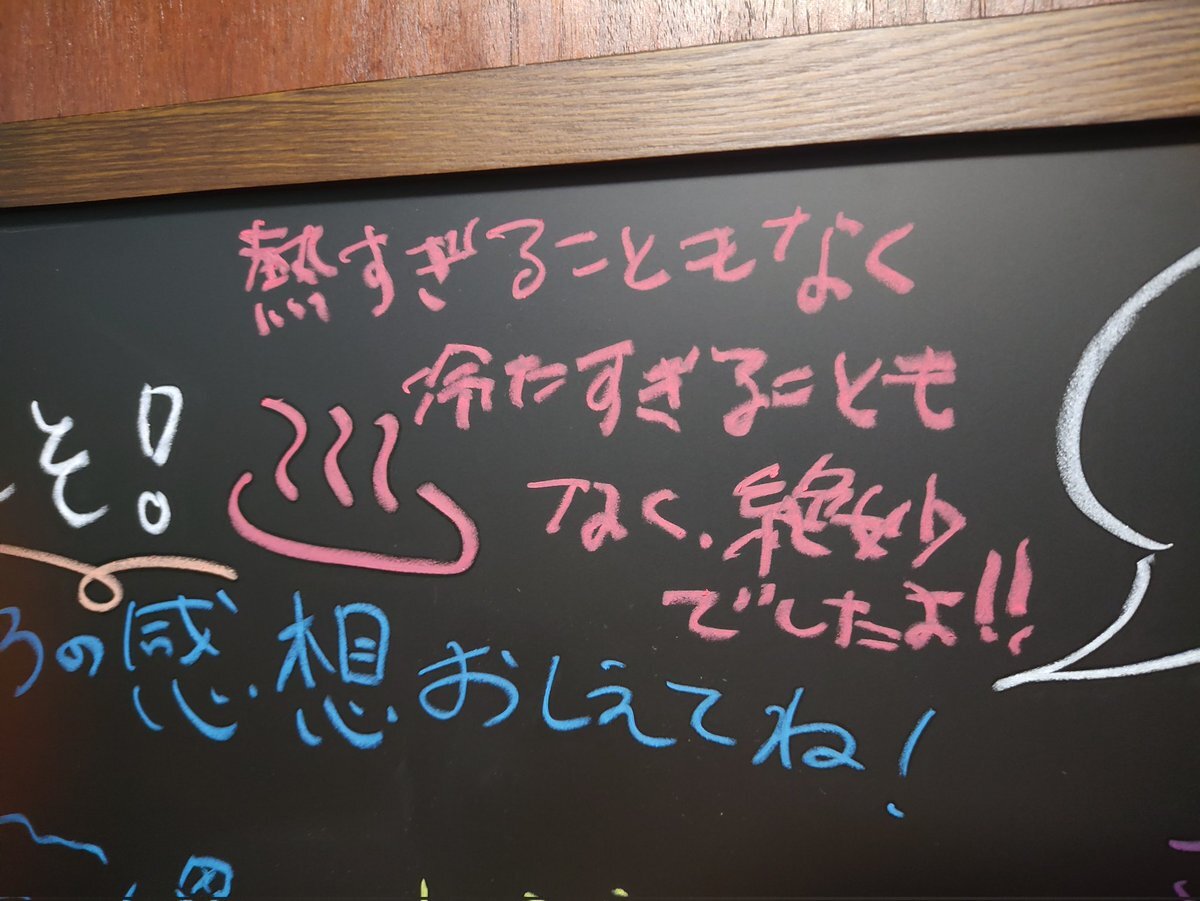 熱すぎることもなく
冷たすぎることも
なく、絶妙
でしたよ!!
そ!
ろの感想おしえてね!